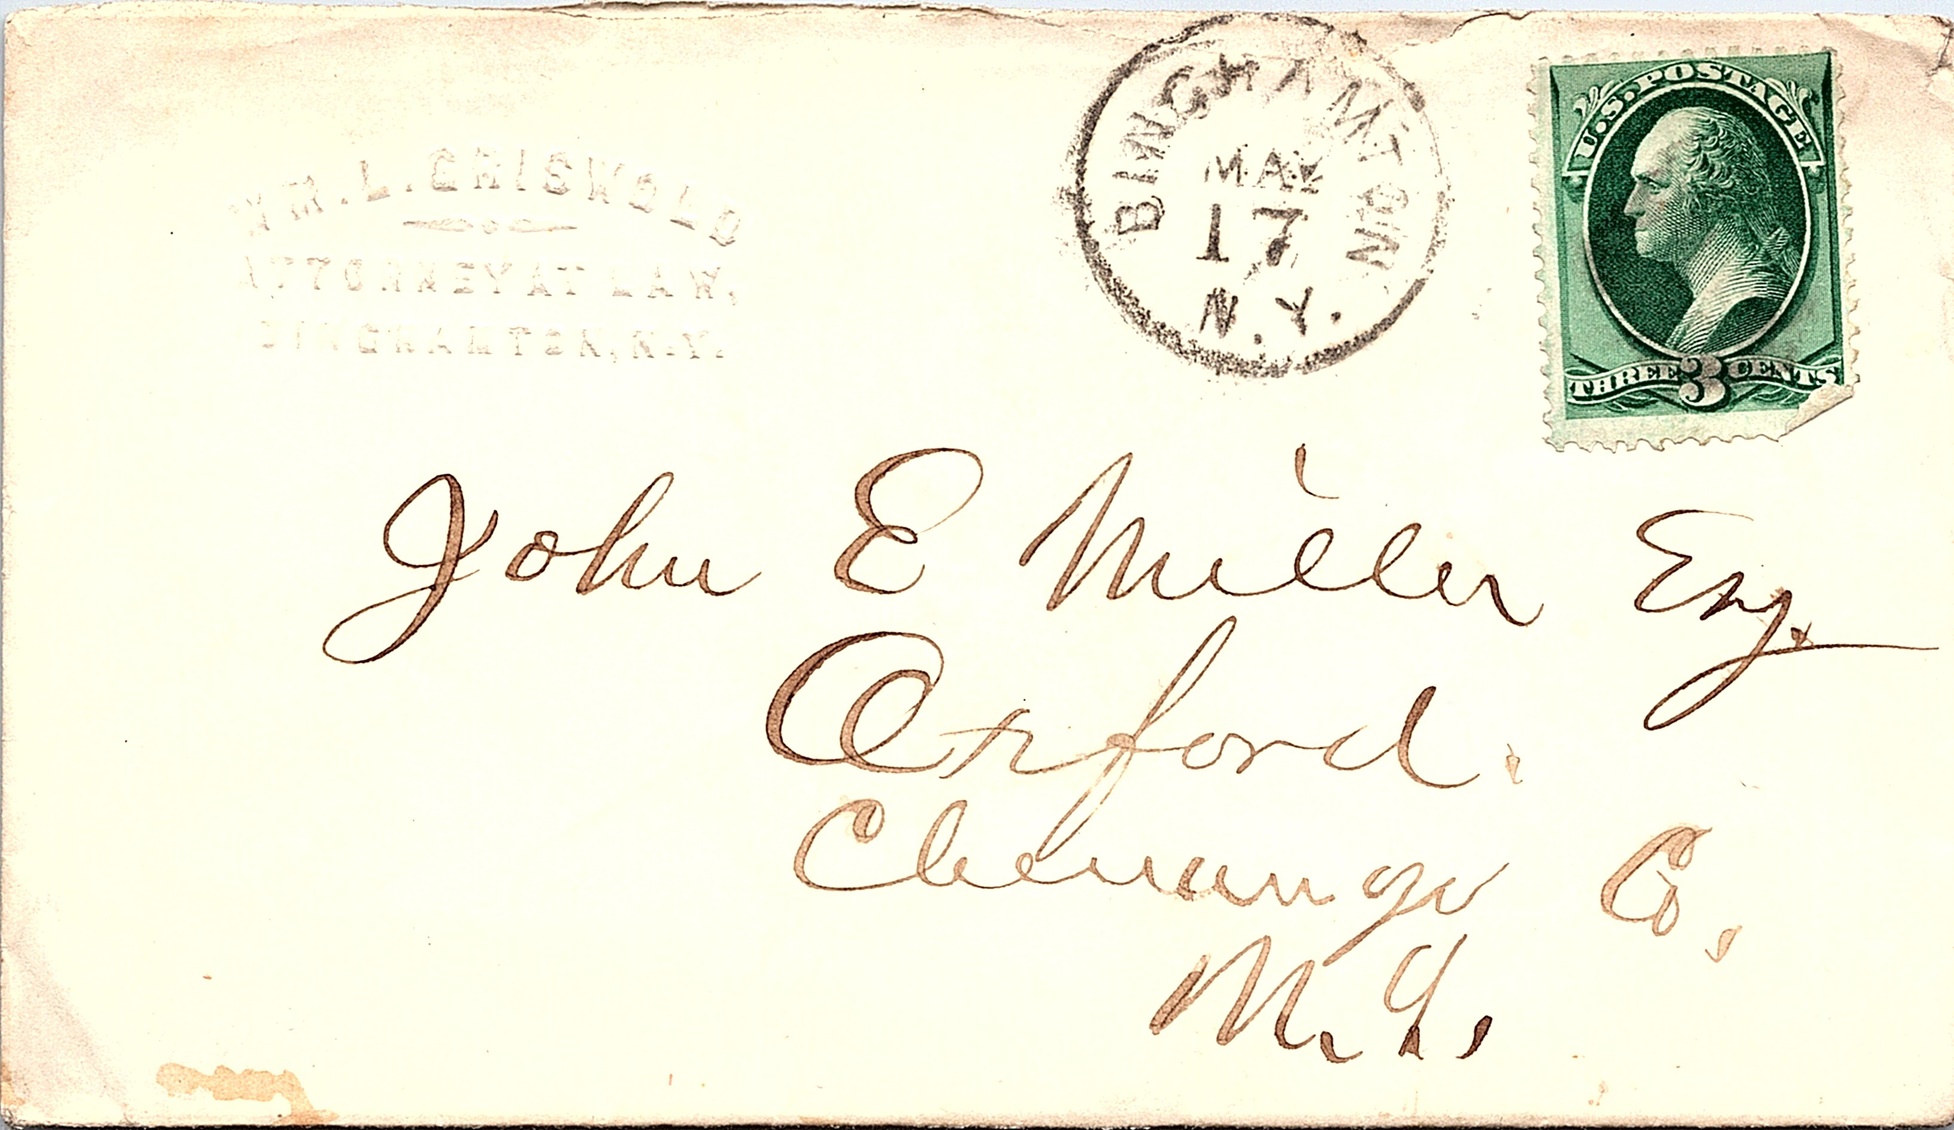 WM. L. GRISWOLD
ATTORNEY AT LAW,
BINGHAMTON, N.Y.
BINGHAMTON
MAY
17
N.Y.
U.S. POSTAGE
THREE 3 CENTS
John E Miller Esq.
Oxford.
Chenango Co,
N.Y.